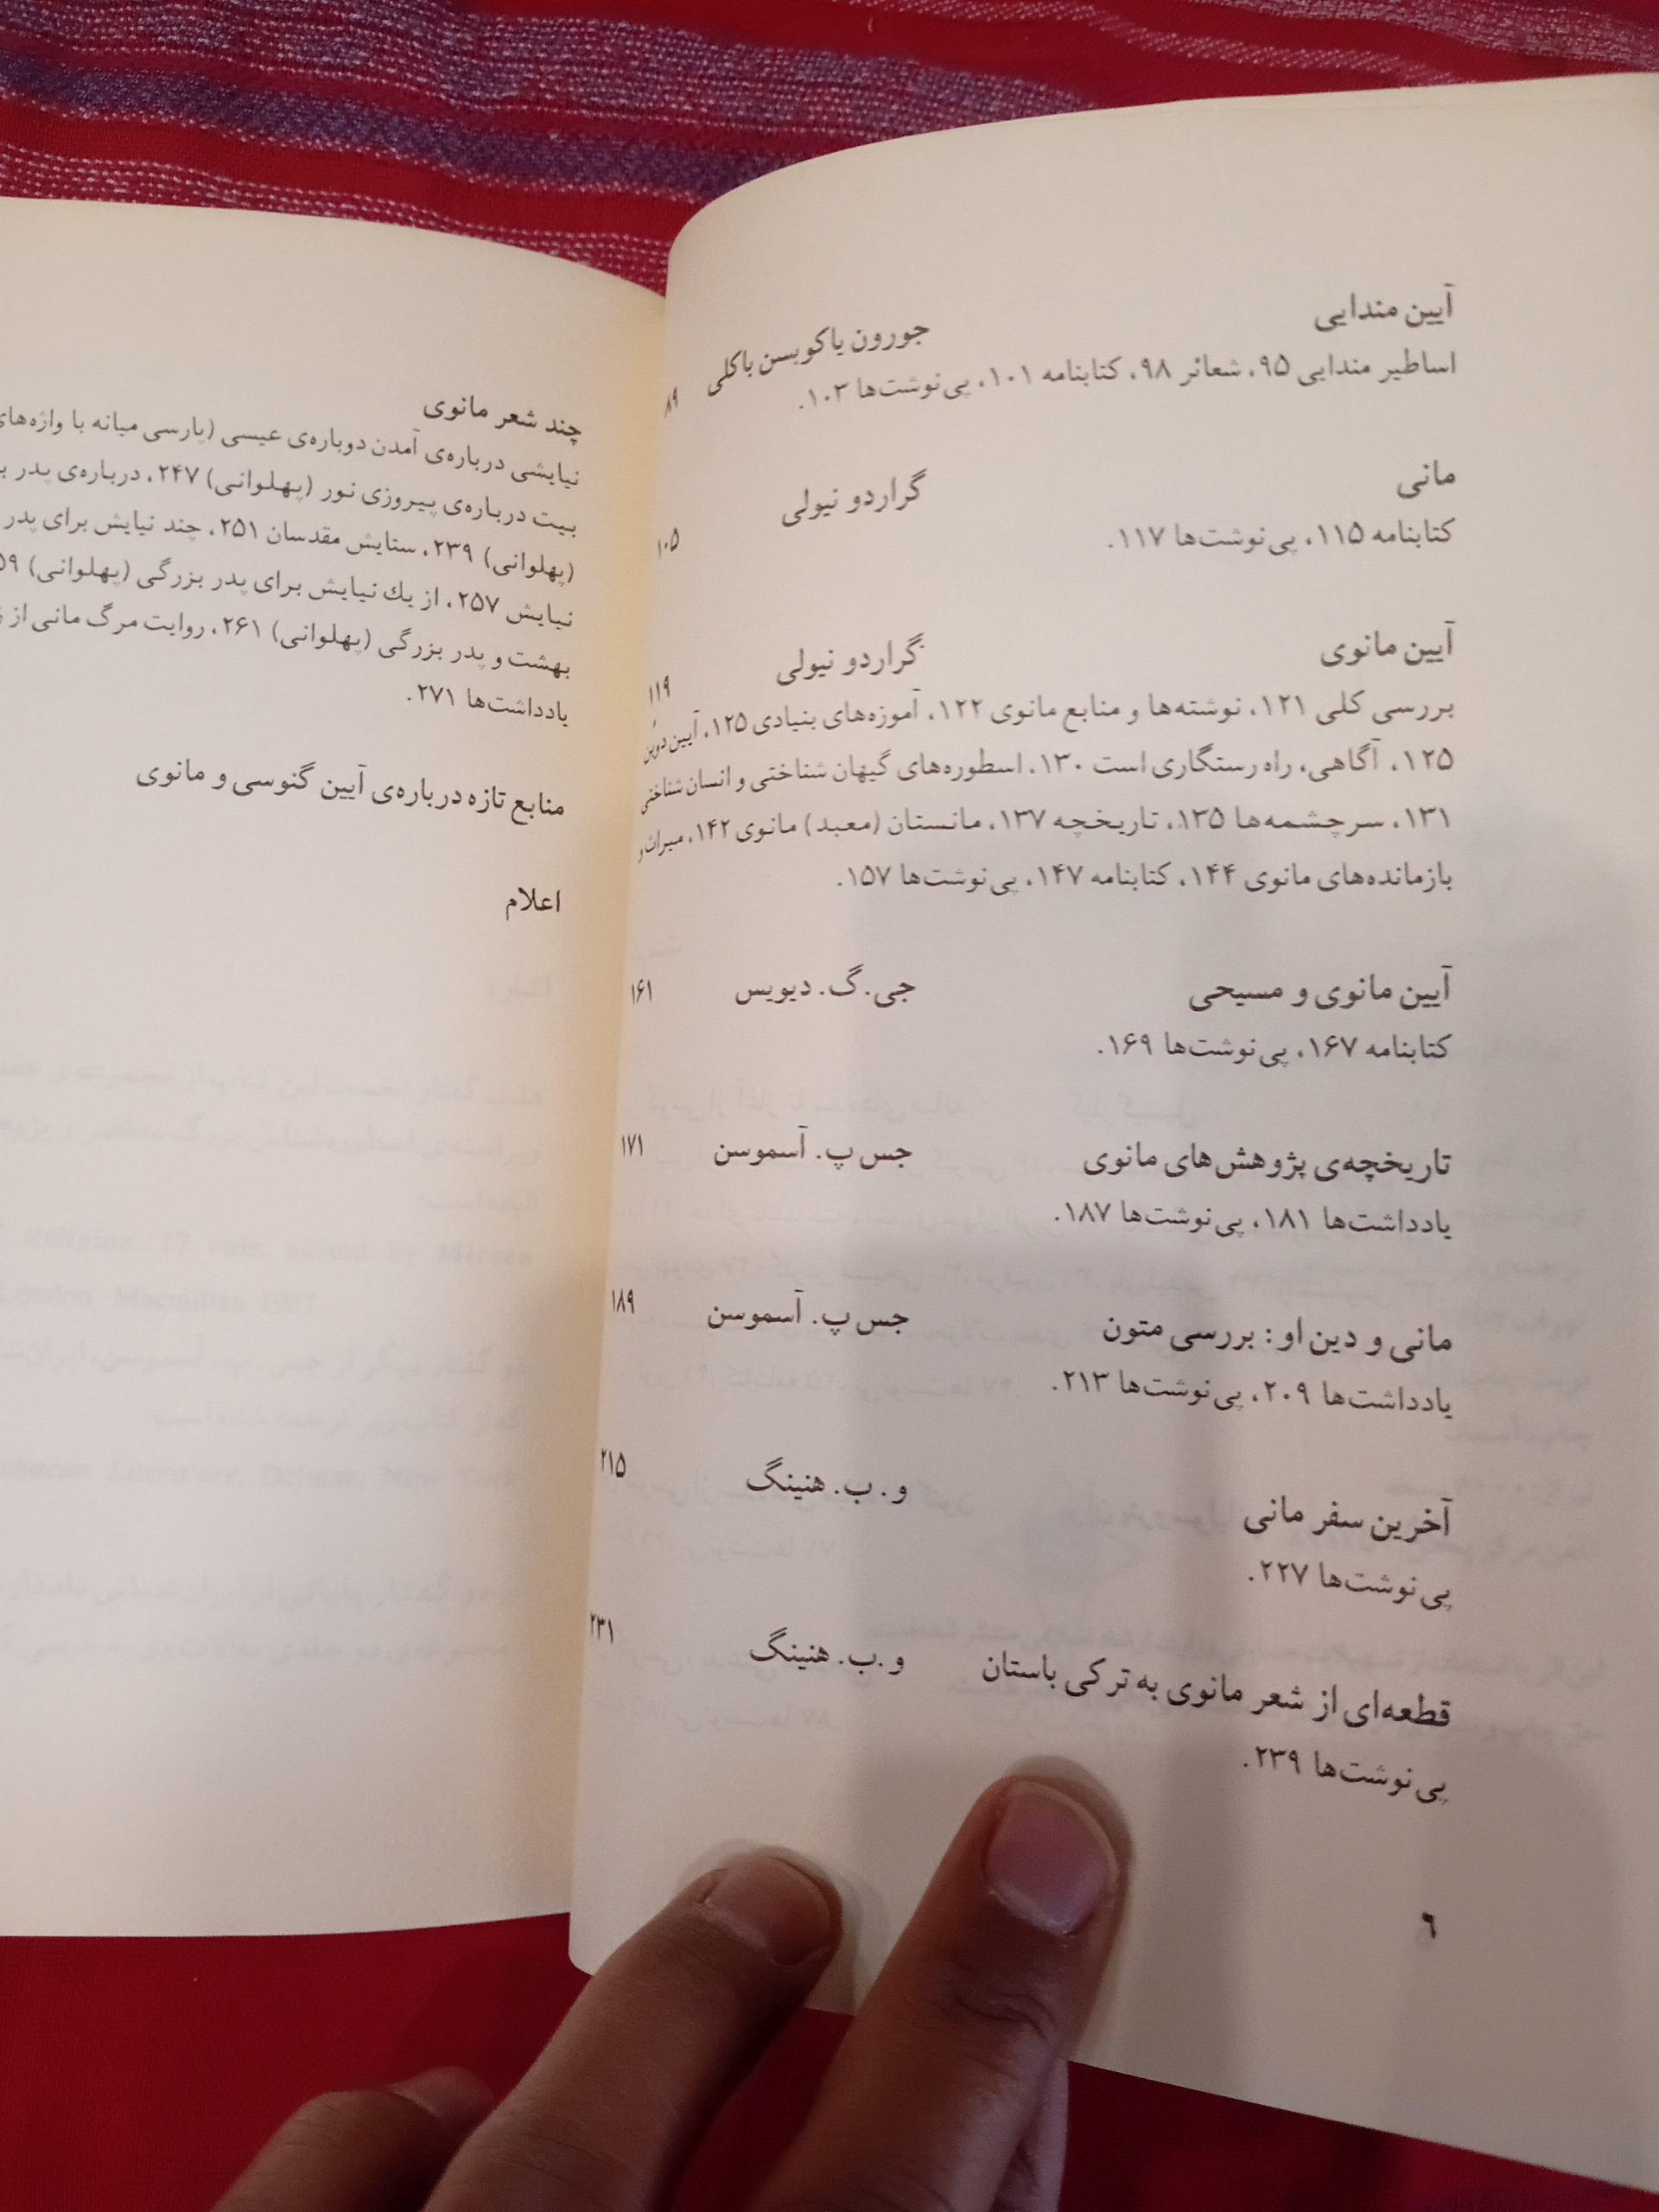 آیین مندایی جورون یاکوبسن باکلی ۸۹
اساطیر مندایی ۹۵، شعائر ۹۸، کتابنامه ۱۰۱، پی‌نوشت‌ها ۱۰۳.
مانی گراردو نیولی ۱۰۵
کتابنامه ۱۱۵، پی‌نوشت‌ها ۱۱۷.
آیین مانوی گراردو نیولی ۱۱۹
بررسی کلی ۱۲۱، نوشته‌ها و منابع مانوی ۱۲۲، آموزه‌های بنیادی ۱۲۵، آیین دوبن
۱۲۵، آگاهی، راه رستگاری است ۱۳۰، اسطوره‌های گیهان شناختی و انسان شناختی
۱۳۱، سرچشمه‌ها ۱۳۵، تاریخچه ۱۳۷، مانستان (معبد) مانوی ۱۴۲، میراث و
بازمانده‌های مانوی ۱۴۴، کتابنامه ۱۴۷، پی‌نوشت‌ها ۱۵۷.
آیین مانوی و مسیحی جی. گ. دیویس ۱۶۱
کتابنامه ۱۶۷، پی‌نوشت‌ها ۱۶۹.
تاریخچه‌ی پژوهش‌های مانوی جس پ. آسموسن ۱۷۱
یادداشت‌ها ۱۸۱، پی‌نوشت‌ها ۱۸۷.
مانی و دین او: بررسی متون جس پ. آسموسن ۱۸۹
یادداشت‌ها ۲۰۹، پی‌نوشت‌ها ۲۱۳.
آخرین سفر مانی و. ب. هنینگ ۲۱۵
پی‌نوشت‌ها ۲۲۷.
قطعه‌ای از شعر مانوی به ترکی باستان و.ب. هنینگ ۲۳۱
پی‌نوشت‌ها ۲۳۹.
۶
چند شعر مانوی
نیایشی درباره‌ی آمدن دوباره‌ی عیسی (پارسی میانه با واژه‌های
بیت درباره‌ی پیروزی نور (پهلوانی) ۲۴۷، درباره‌ی پدر
(پهلوانی) ۲۳۹، ستایش مقدسان ۲۵۱، چند نیایش برای پدر
نیایش ۲۵۷، از یك نیایش برای پدر بزرگی (پهلوانی)
بهشت و پدر بزرگی (پهلوانی) ۲۶۱، روایت مرگ مانی از
یادداشت‌ها ۲۷۱.
منابع تازه درباره‌ی آیین گنوسی و مانوی
اعلام